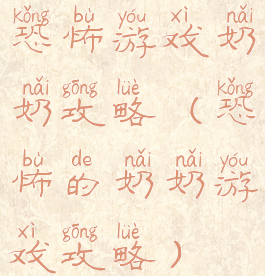 kǒng bù yóu xì nǎi
恐怖游戏奶
nǎi gōng lüè kǒng
奶攻略(恐
bù de nǎi nǎi yóu
怖的奶奶游
xì gōng lüè
戏攻略)